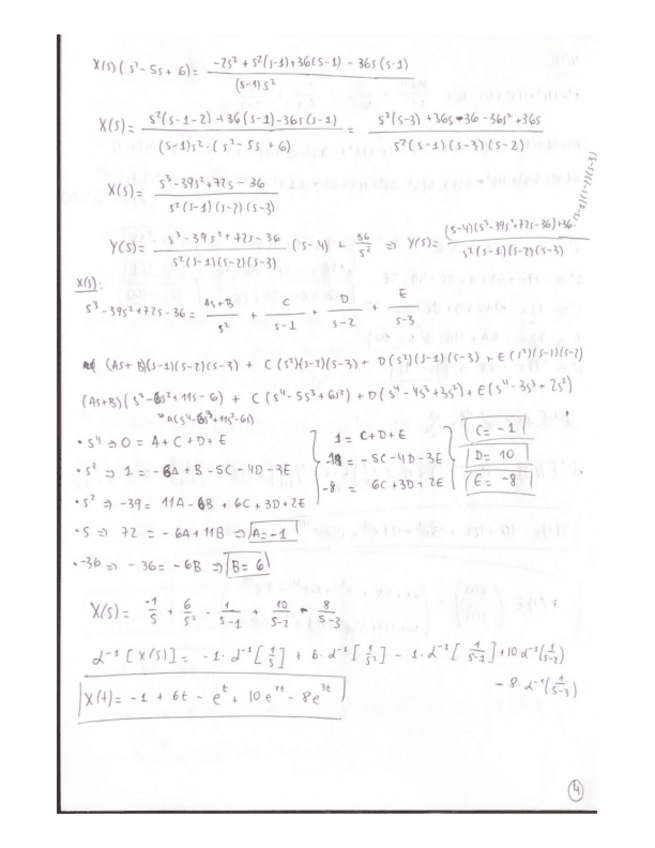 X(s)(s²-5s+6)= (-2s²+s²(s-1)+36(s-1)-36s(s-1))/((s-1)s²)
X(s)= (s²(s-1-2)+36(s-1)-36s(s-1))/((s-1)s²·(s²-5s+6)) = (s²(s-3)+36s-36-36s²+36s)/(s²(s-1)(s-3)(s-2))
X(s)= (s³-39s²+72s-36)/(s²(s-1)(s-2)(s-3))
Y(s)= (s³-39s²+72s-36)/(s²(s-1)(s-2)(s-3)) ·(s-4) + 36/s² ⇒ Y(s)= ((s-4)(s³-39s²+72s-36)+36·(s-1)(s-2)(s-3))/(s²(s-1)(s-2)(s-3))
X(s):
s³-39s²+72s-36= (As+B)/s² + C/(s-1) + D/(s-2) + E/(s-3)
(As+B)(s-1)(s-2)(s-3) + C(s²)(s-2)(s-3) + D(s²)(s-1)(s-3) + E(s²)(s-1)(s-2)
(As+B)(s³-6s²+11s-6) + C(s⁴-5s³+6s²) + D(s⁴-4s³+3s²) + E(s⁴-3s³+2s²)
A(s⁴-6s³+11s²-6s)
• s⁴ ⇒ 0 = A+C+D+E
1 = C+D+E
C= -1
• s³ ⇒ 1 = -6A+B-5C-4D-3E
= -5C-4D-3E
D= 10
• s² ⇒ -39= 11A-6B+6C+3D+2E
-8 = 6C+3D+2E
E= -8
• s ⇒ 72 = -6A+11B ⇒ A=-1
• -36 ⇒ -36= -6B ⇒ B= 6
X(s)= -1/s + 6/s² - 1/(s-1) + 10/(s-2) - 8/(s-3)
ℒ⁻¹[X(s)]= -1·ℒ⁻¹[1/s] + 6·ℒ⁻¹[1/s²] - 1·ℒ⁻¹[1/(s-1)]+10ℒ⁻¹(1/(s-2))
- 8·ℒ⁻¹(1/(s-3))
X(t)= -1 + 6t - eᵗ + 10e²ᵗ - 8e³ᵗ
4